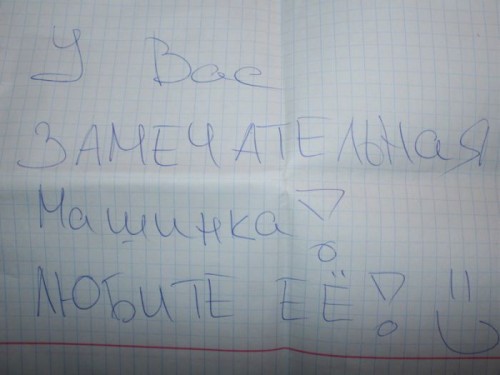 У Вас
ЗАМЕЧАТЕЛЬНАЯ
Машинка!
ЛЮБИТЕ ЕЁ! =)